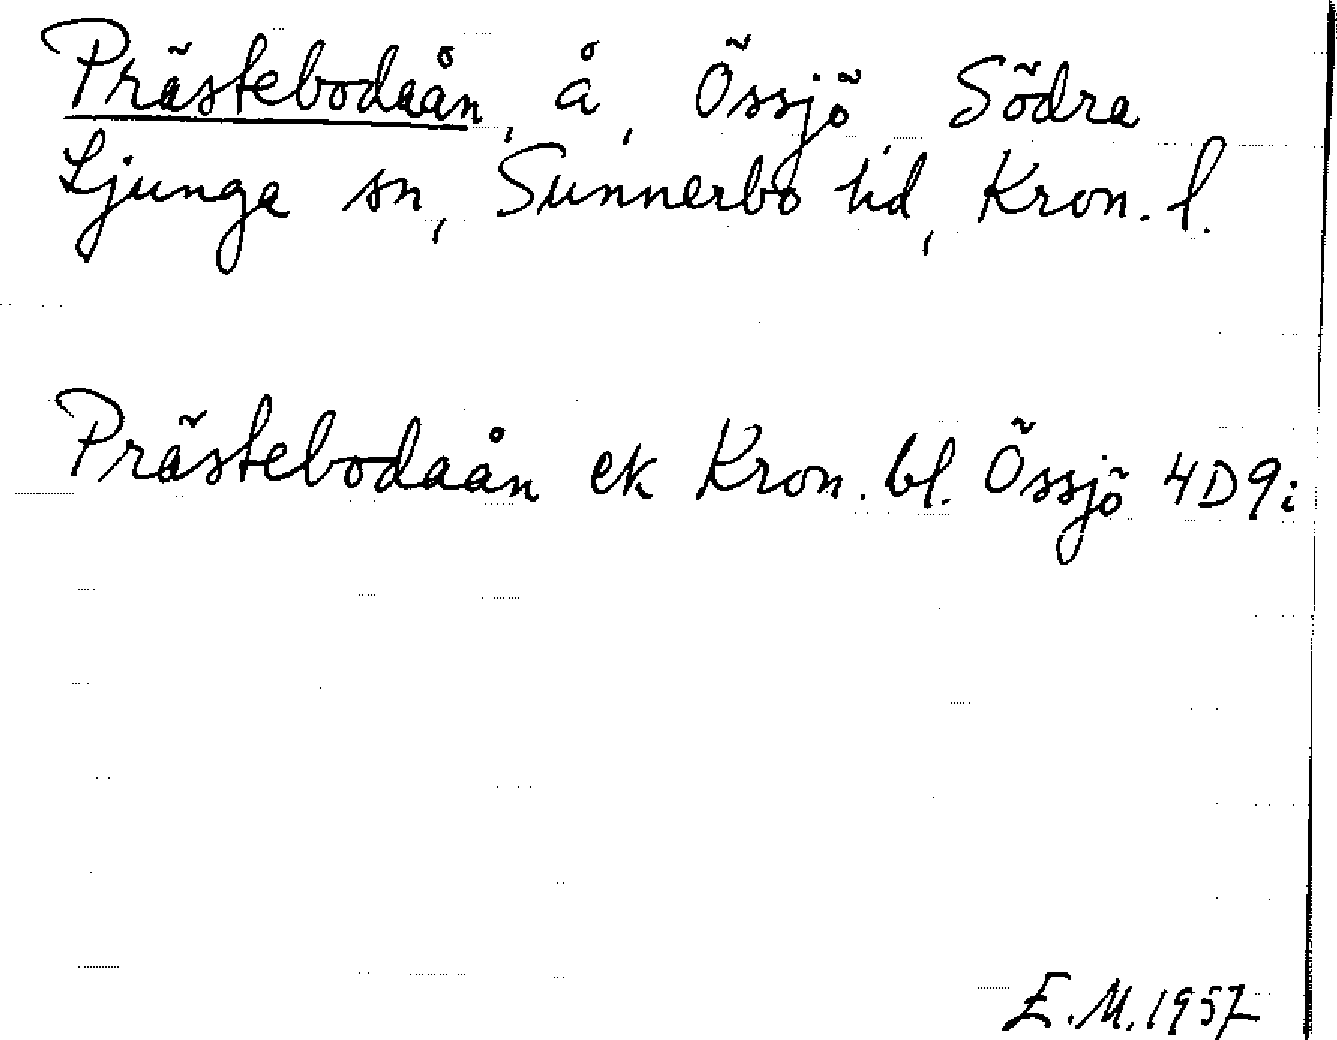 Prästebodaån, å, Össjö Södra
Ljunga sn, Sunnerbo hd, Kron. l.
Prästebodaån ek Kron. bl. Össjö 4D9i
E.M. 1957